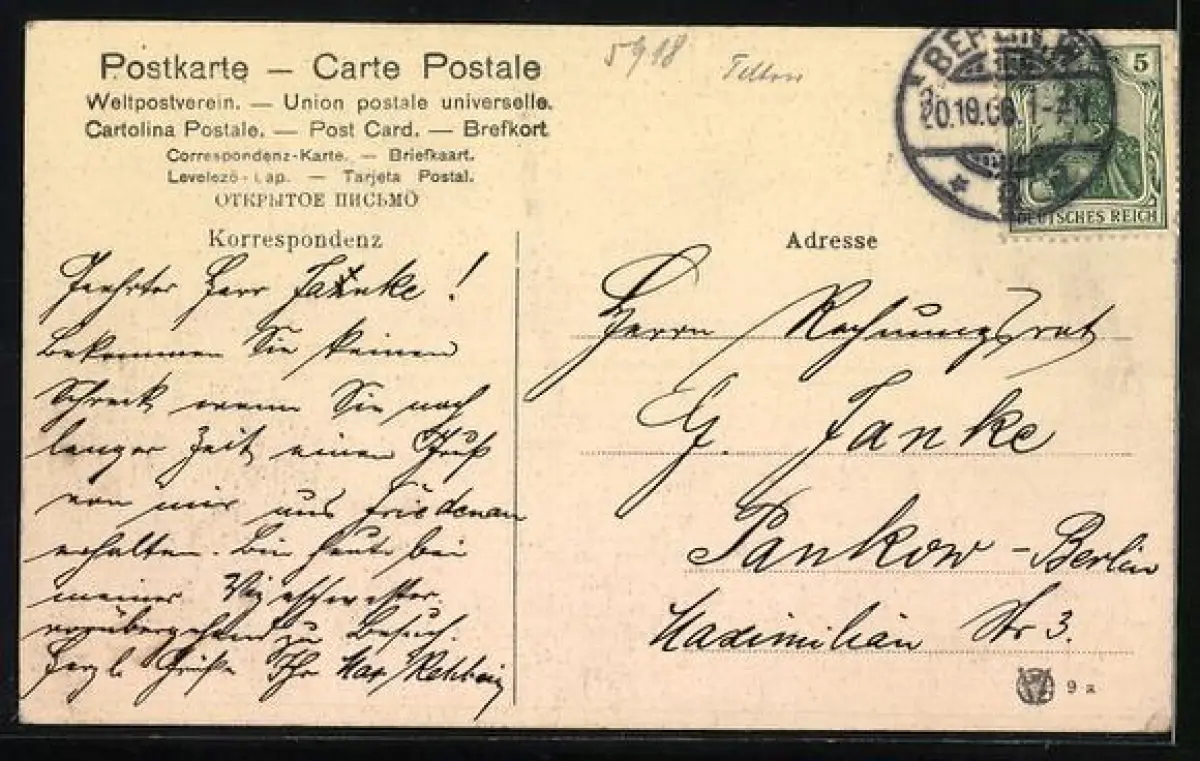 5918
Postkarte — Carte Postale
Weltpostverein. — Union postale universelle.
Cartolina Postale. — Post Card. — Brefkort
Correspondenz-Karte. — Briefkaart.
Levelezö-Lap. — Tarjeta Postal.
ОТКРЫТОЕ ПИСЬМО
Korrespondenz
Geehrter Herr Janke!
Bekommen Sie keinen
Schreck wenn Sie nach
langer Zeit einen Gruß
von mir aus Friedenau
erhalten. Bin heute bei
meiner
vorübergehend zu Besuch.
Herzl Grüße Ihr Max Rehbein
BERLIN
20.10.06. 1-2N.
5
DEUTSCHES REICH
Adresse
Herrn Rechnungsrat
G. Janke
Pankow - Berlin
Maximilian Str 3.
9 a